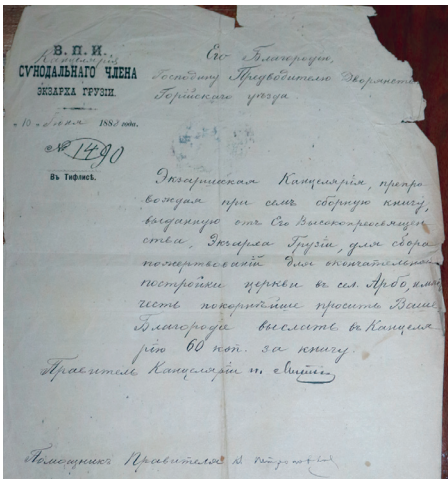 В. П. И.
Канцелярія
СѴНОДАЛЬНАГО ЧЛЕНА
ЭКЗАРХА ГРУЗІИ.
Его Благородію,
Господину Предводителю Дворянства
Горійскаго уѣзда
10 Іюня 188 года.
№ 1490
Въ Тифлисѣ.
Экзаршская Канцелярія, препро
вождая при семъ сборную книгу,
выданную отъ Его Высокопреосвящен
ства, Экзарха Грузіи, для сбора
пожертвованій для окончательной
постройки церкви въ сел. Арбо, имѣетъ
честь покорнѣйше просить Ваше
Благородіе выслать въ Канцеля
рію 60 коп. за книгу.
Правитель Канцеляріи
Помощникъ Правителя